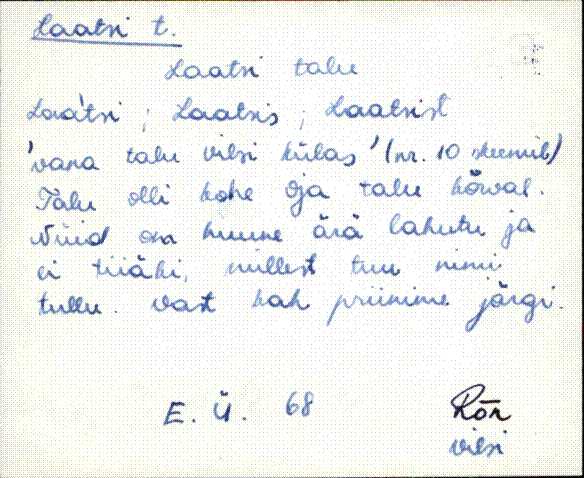 Laatsi t.
Laatsi talu
Laatsi ; Laatsis ; Laatsist
'vana talu Vilsi külas' (nr. 10 skeemil)
Talu olli kohe Oja talu kõrval.
Nüid om huune ärä lahutu ja
ei tiiäki, millest tuu nimi
tullu. vast kah priinime järgi.
E. Ü. 68
Rõn
Vilsi